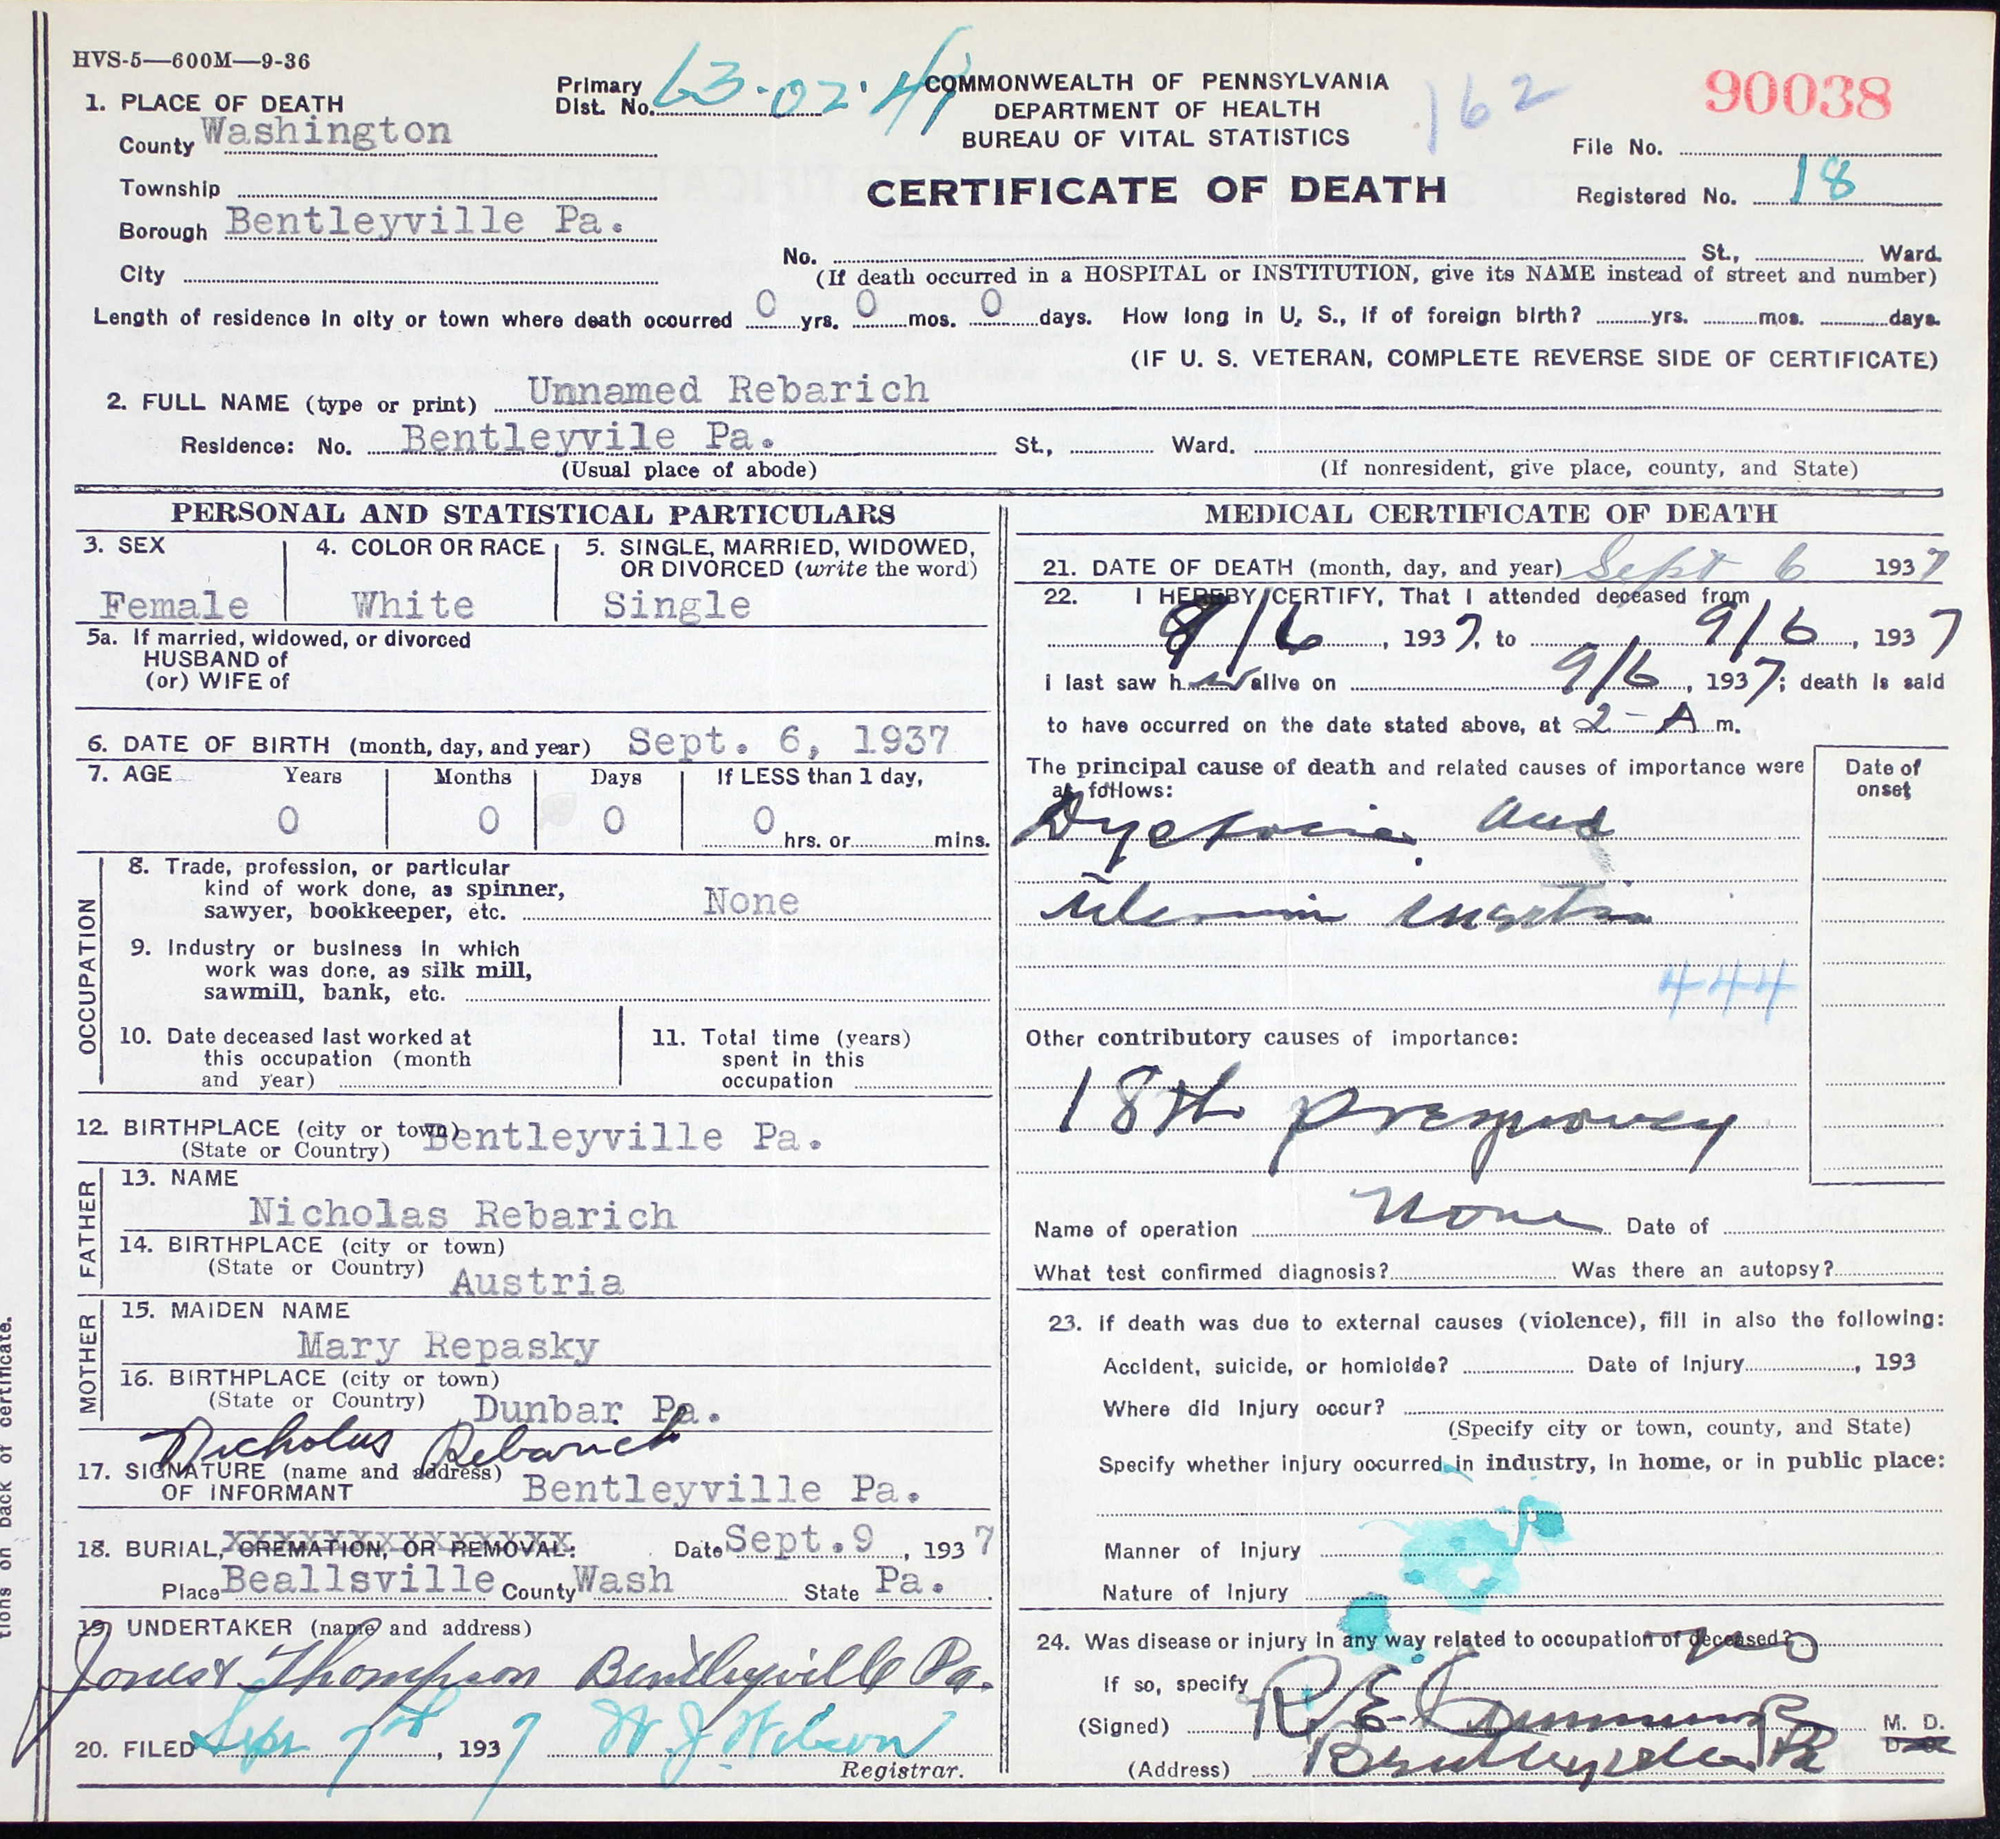 HVS-5—600M—9-36
1. PLACE OF DEATH
County Washington
Township
Borough Bentleyville Pa.
City
Primary Dist. No. 63-02-41
COMMONWEALTH OF PENNSYLVANIA
DEPARTMENT OF HEALTH
BUREAU OF VITAL STATISTICS
CERTIFICATE OF DEATH
162
90038
File No.
Registered No. 18
No. St., Ward.
(If death occurred in a HOSPITAL or INSTITUTION, give its NAME instead of street and number)
Length of residence in city or town where death occurred 0 yrs. 0 mos. 0 days. How long in U. S., if of foreign birth? yrs. mos. days.
(IF U. S. VETERAN, COMPLETE REVERSE SIDE OF CERTIFICATE)
2. FULL NAME (type or print) Unnamed Rebarich
Residence: No. Bentleyvile Pa. St., Ward.
(Usual place of abode) (If nonresident, give place, county, and State)
PERSONAL AND STATISTICAL PARTICULARS
3. SEX
Female
4. COLOR OR RACE
White
5. SINGLE, MARRIED, WIDOWED,
OR DIVORCED (write the word)
Single
5a. If married, widowed, or divorced
HUSBAND of
(or) WIFE of
6. DATE OF BIRTH (month, day, and year) Sept. 6, 1937
7. AGE Years Months Days If LESS than 1 day,
0 0 0 0 hrs. or mins.
OCCUPATION
8. Trade, profession, or particular
kind of work done, as spinner,
sawyer, bookkeeper, etc. None
9. Industry or business in which
work was done, as silk mill,
sawmill, bank, etc.
10. Date deceased last worked at
this occupation (month
and year)
11. Total time (years)
spent in this
occupation
12. BIRTHPLACE (city or town) Bentleyville Pa.
(State or Country)
FATHER
13. NAME
Nicholas Rebarich
14. BIRTHPLACE (city or town)
(State or Country) Austria
MOTHER
15. MAIDEN NAME
Mary Repasky
16. BIRTHPLACE (city or town)
(State or Country) Dunbar Pa.
Nicholus Rebarich
17. SIGNATURE (name and address)
OF INFORMANT Bentleyville Pa.
18. BURIAL, CREMATION, OR REMOVAL: Date Sept. 9, 1937
Place Beallsville County Wash State Pa.
19. UNDERTAKER (name and address)
Jones & Thompson Bentleyville Pa.
20. FILED Sept 7th, 1937 W. J. Wilson
Registrar.
MEDICAL CERTIFICATE OF DEATH
21. DATE OF DEATH (month, day, and year) Sept 6 1937
22. I HEREBY CERTIFY, That I attended deceased from
9/6, 1937, to 9/6, 1937
I last saw h alive on 9/6, 1937; death is said
to have occurred on the date stated above, at 2-A m.
The principal cause of death and related causes of importance were
as follows:
Date of
onset
Dystocia and
uterine inertia
444
Other contributory causes of importance:
18th pregnancy
Name of operation None Date of
What test confirmed diagnosis? Was there an autopsy?
23. If death was due to external causes (violence), fill in also the following:
Accident, suicide, or homicide? Date of Injury , 193
Where did Injury occur?
(Specify city or town, county, and State)
Specify whether injury occurred in industry, in home, or in public place:
Manner of Injury
Nature of Injury
24. Was disease or injury in any way related to occupation of deceased? no
If so, specify
(Signed) R. E. M. D.
D. O.
(Address) Bentleyville Pa
tions on back of certificate.